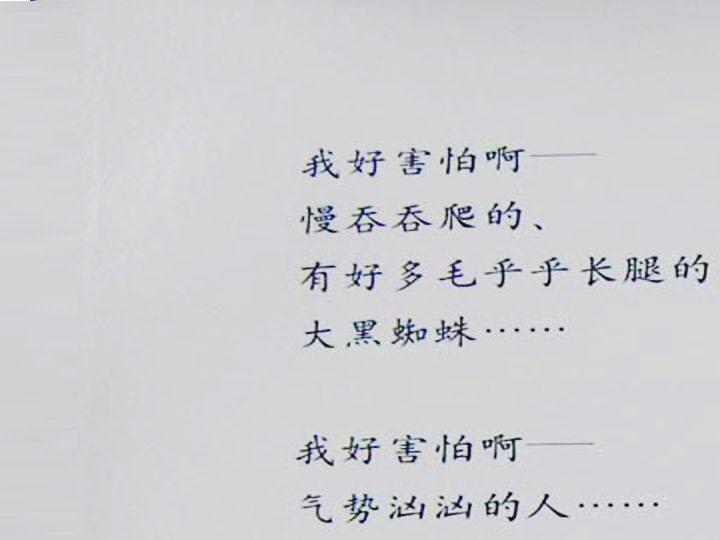 我好害怕啊——
慢吞吞爬的、
有好多毛乎乎长腿的
大黑蜘蛛……
我好害怕啊——
气势汹汹的人……